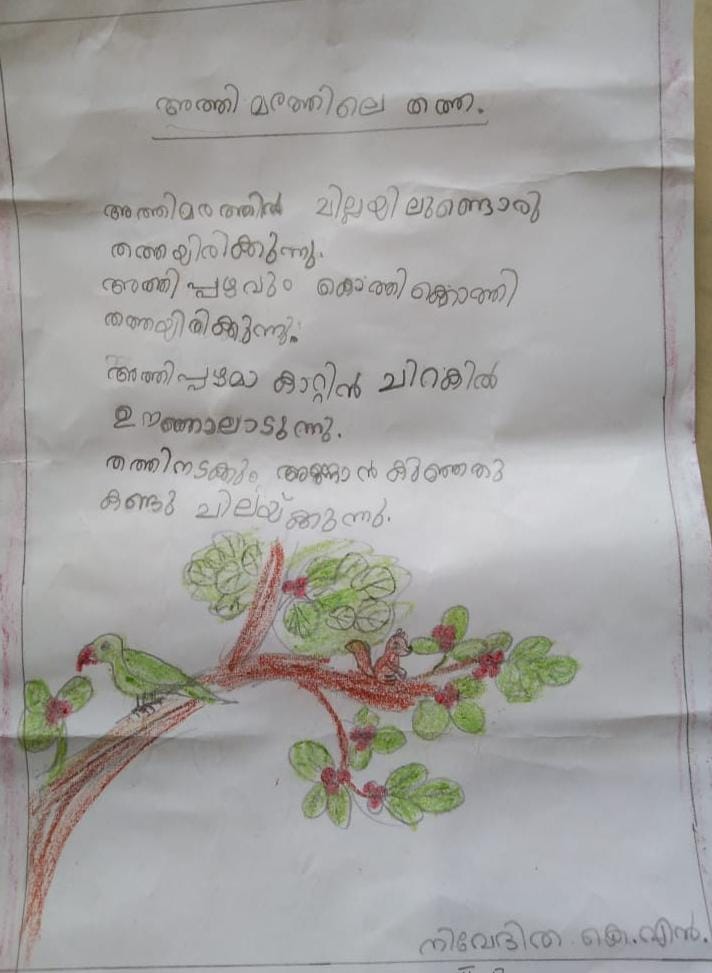 അത്തി മരത്തിലെ തത്ത.
അത്തിമരത്തിൻ ചില്ലയിലുണ്ടൊരു
തത്തയിരിക്കുന്നു.
അത്തിപ്പഴവും കൊത്തിക്കൊത്തി
തത്തയിരിക്കുന്നു.
അത്തിപ്പഴമാ കാറ്റിൻ ചിറകിൽ
ഊഞ്ഞാലാടുന്നു.
തത്തിനടക്കും അണ്ണാൻ കുഞ്ഞതു
കണ്ടു ചിലയ്ക്കുന്നു.
നിവേദിത കെ.എൻ.